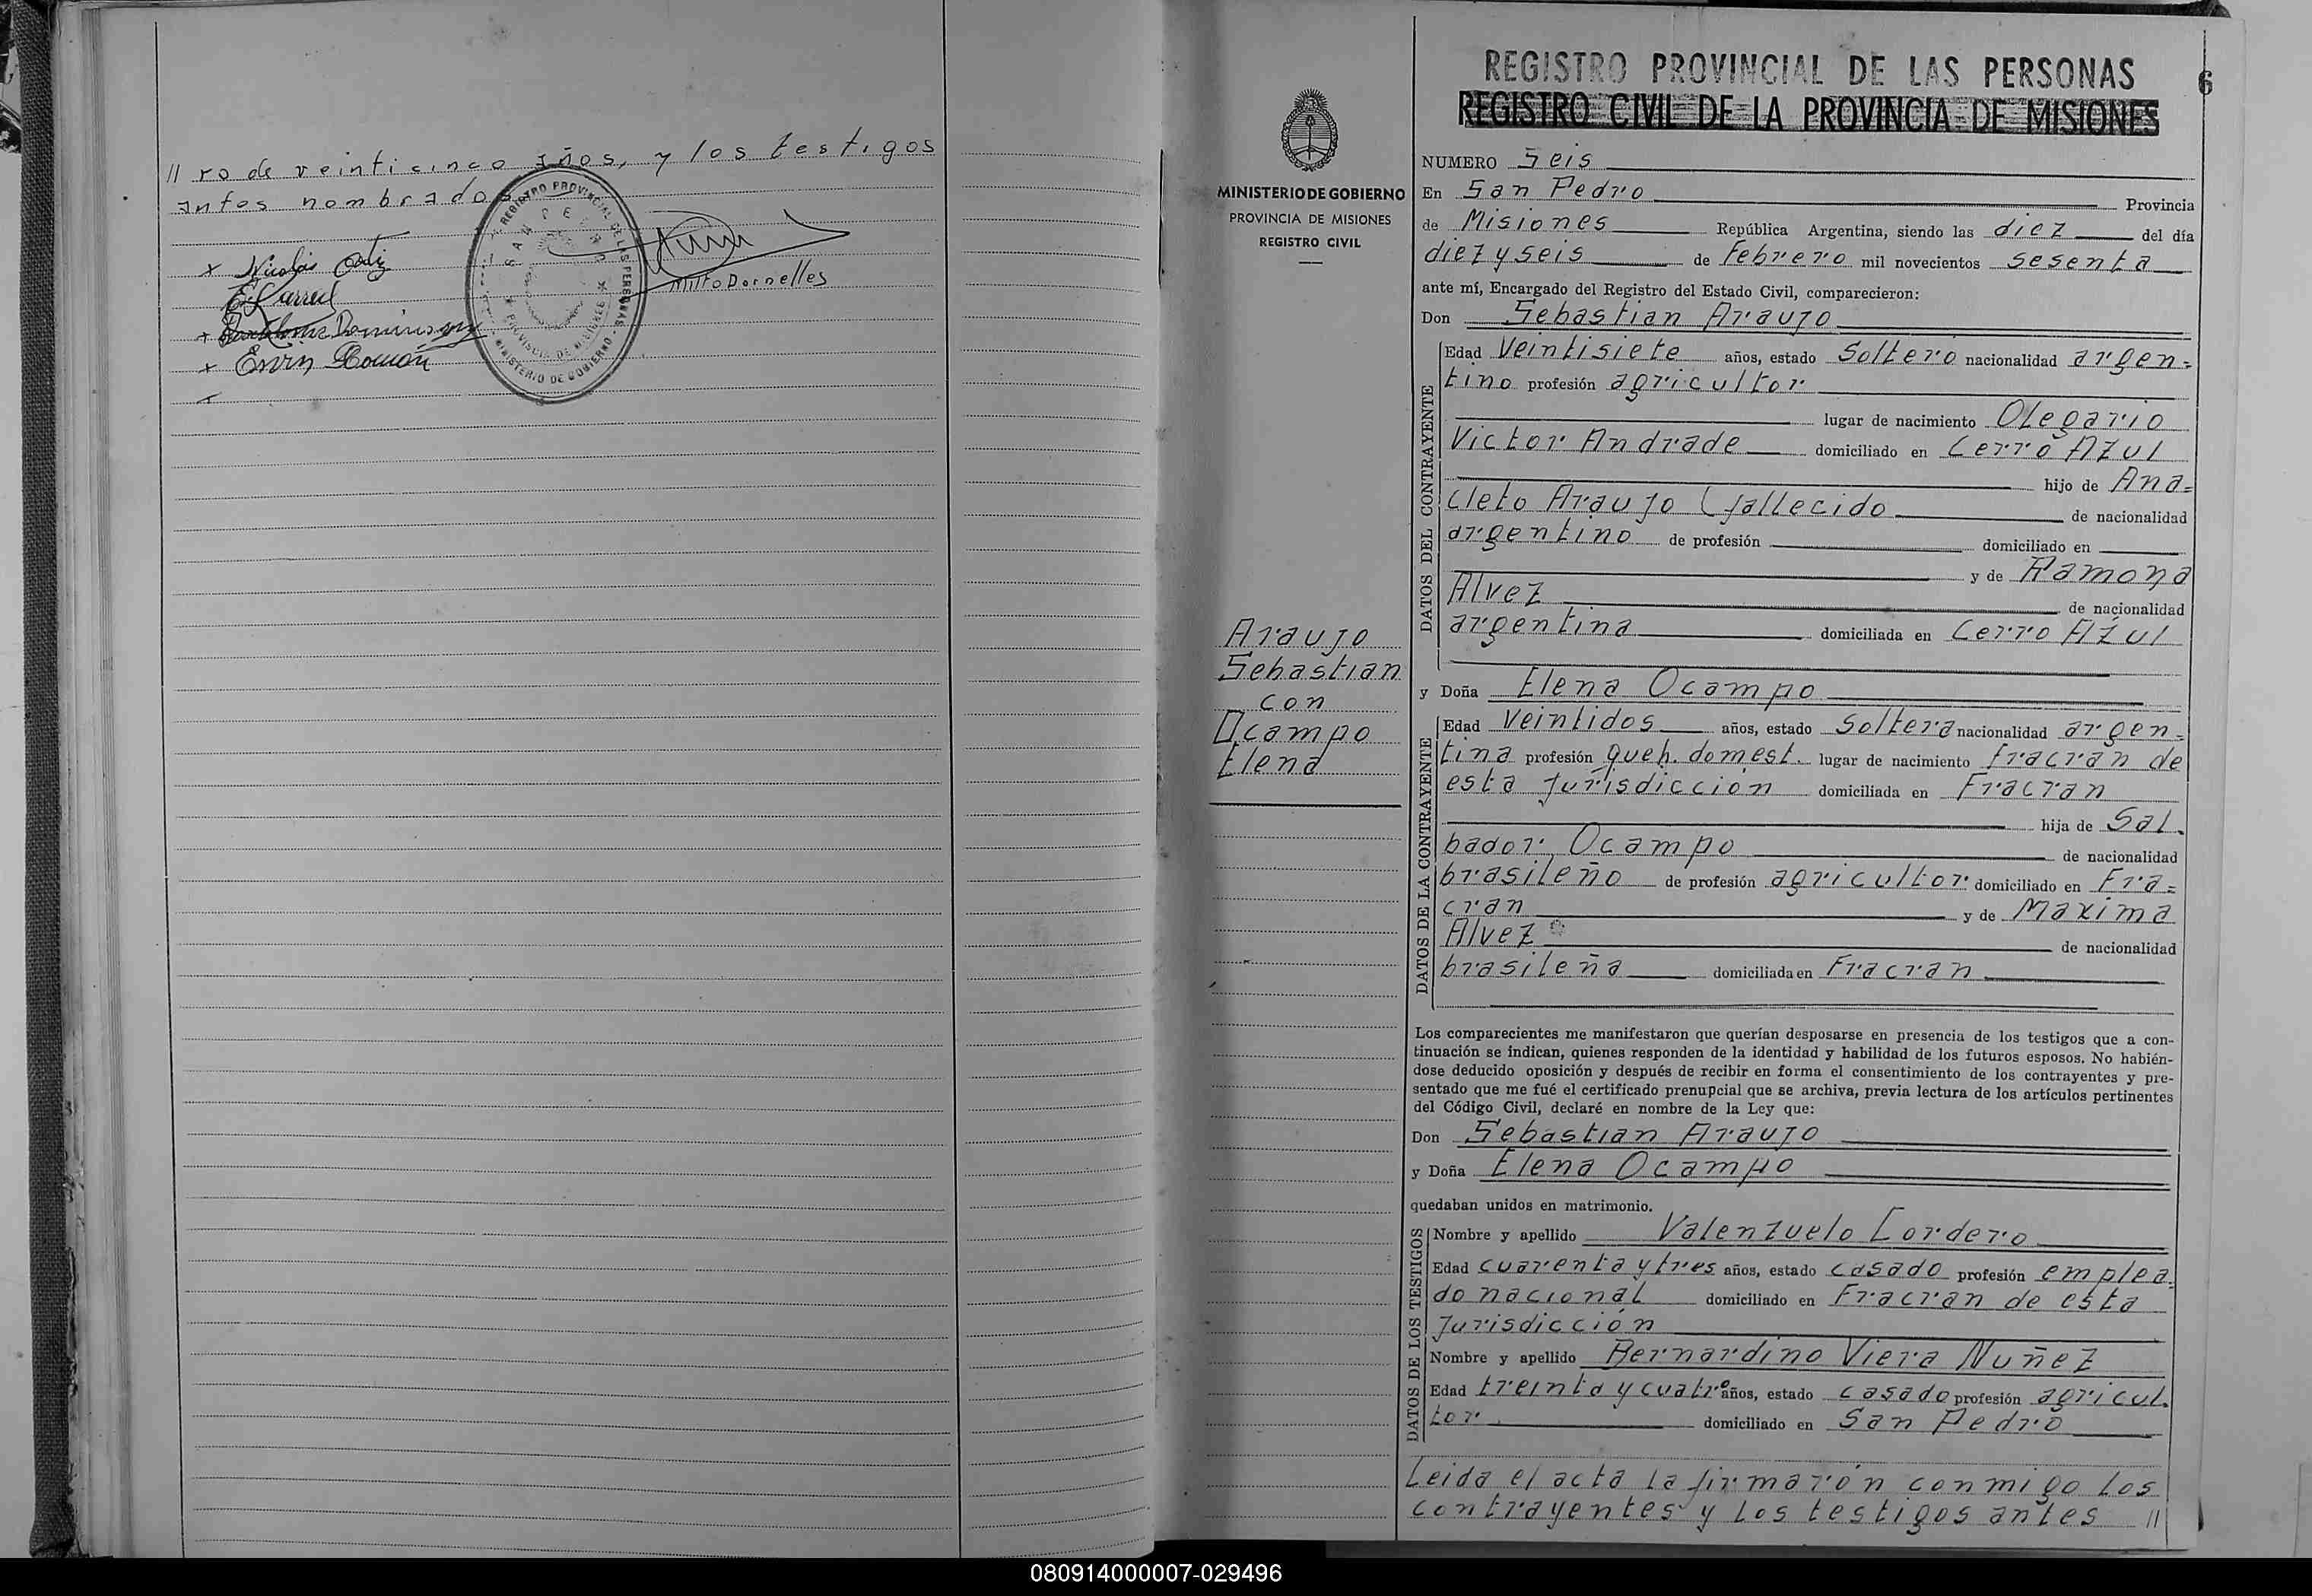 // ro de veinticinco años, y los testigos
antes nombrados
REGISTRO PROVINCIAL DE LAS PERSONAS
SAN PEDRO
PROVINCIA DE MISIONES
MINISTERIO DE GOBIERNO
+ Nicolás Ortiz
Milto Dornelles
+ Bartolome Dominguez
+ Ervin Comán
+
6
REGISTRO PROVINCIAL DE LAS PERSONAS
REGISTRO CIVIL DE LA PROVINCIA DE MISIONES
MINISTERIO DE GOBIERNO
PROVINCIA DE MISIONES
REGISTRO CIVIL
Araujo
Sebastian
con
Ocampo
Elena
NUMERO Seis
En San Pedro Provincia
de Misiones República Argentina, siendo las diez del día
diez y seis de Febrero mil novecientos sesenta
ante mí, Encargado del Registro del Estado Civil, comparecieron:
Don Sebastian Araujo
DATOS DEL CONTRAYENTE
Edad Veintisiete años, estado Soltero nacionalidad argen=
tino profesión agricultor
lugar de nacimiento Olegario
Victor Andrade domiciliado en Cerro Azul
hijo de Ana=
cleto Araujo (fallecido de nacionalidad
argentino de profesión domiciliado en
y de Ramona
Alvez de nacionalidad
argentina domiciliada en Cerro Azul
y Doña Elena Ocampo
DATOS DE LA CONTRAYENTE
Edad Veintidos años, estado Soltera nacionalidad argen=
tina profesión queh. domest. lugar de nacimiento Fracran de
esta Jurisdicción domiciliada en Fracran
hija de Sal-
bador Ocampo de nacionalidad
brasileño de profesión agricultor domiciliado en Fra=
cran y de Maxima
Alvez de nacionalidad
brasileña domiciliada en Fracran
Los comparecientes me manifestaron que querían desposarse en presencia de los testigos que a con-
tinuación se indican, quienes responden de la identidad y habilidad de los futuros esposos. No habién-
dose deducido oposición y después de recibir en forma el consentimiento de los contrayentes y pre-
sentado que me fué el certificado prenupcial que se archiva, previa lectura de los artículos pertinentes
del Código Civil, declaré en nombre de la Ley que:
Don Sebastian Araujo
y Doña Elena Ocampo
quedaban unidos en matrimonio.
DATOS DE LOS TESTIGOS
Nombre y apellido Valenzuelo Cordero
Edad cuarenta y tres años, estado casado profesión emplea-
do nacional domiciliado en Fracran de esta
Jurisdicción
Nombre y apellido Bernardino Viera Nuñez
Edad treinta y cuatro años, estado casado profesión agricul-
tor domiciliado en San Pedro
Leida el acta la firmarón conmigo los
contrayentes y los testigos antes //
080914000007-029496